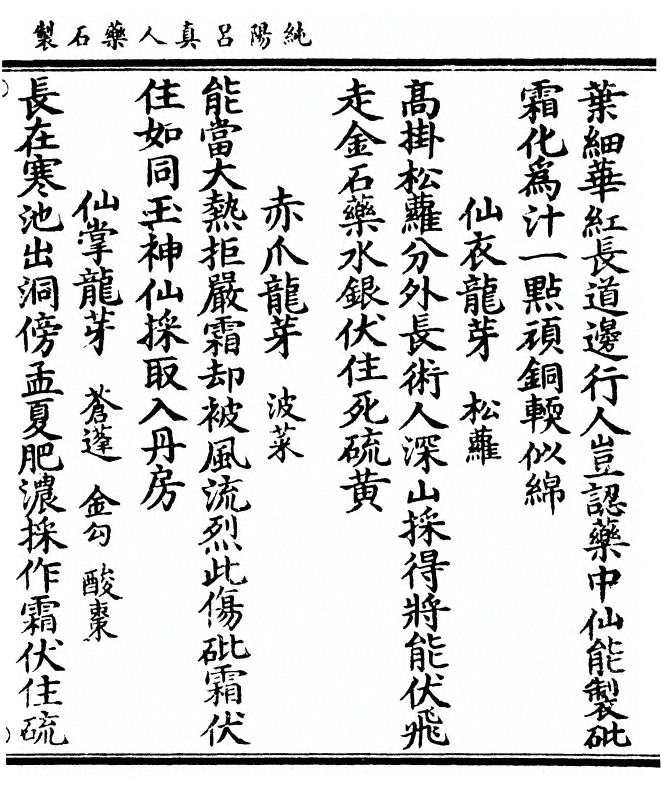 純陽呂真人藥石製
葉細華紅長道邊行人豈認藥中仙能製砒
霜化為汁一點頑銅輭似綿
仙衣龍芽 松蘿
高掛松蘿分外長術人深山採得將能伏飛
走金石藥水銀伏住死硫黃
赤爪龍芽 波菜
能當大熱拒嚴霜却被風流烈此傷砒霜伏
住如同玉神仙採取入丹房
仙掌龍芽 蒼蓬 金勾 酸棗
長在寒池出洞傍孟夏肥濃採作霜伏住硫